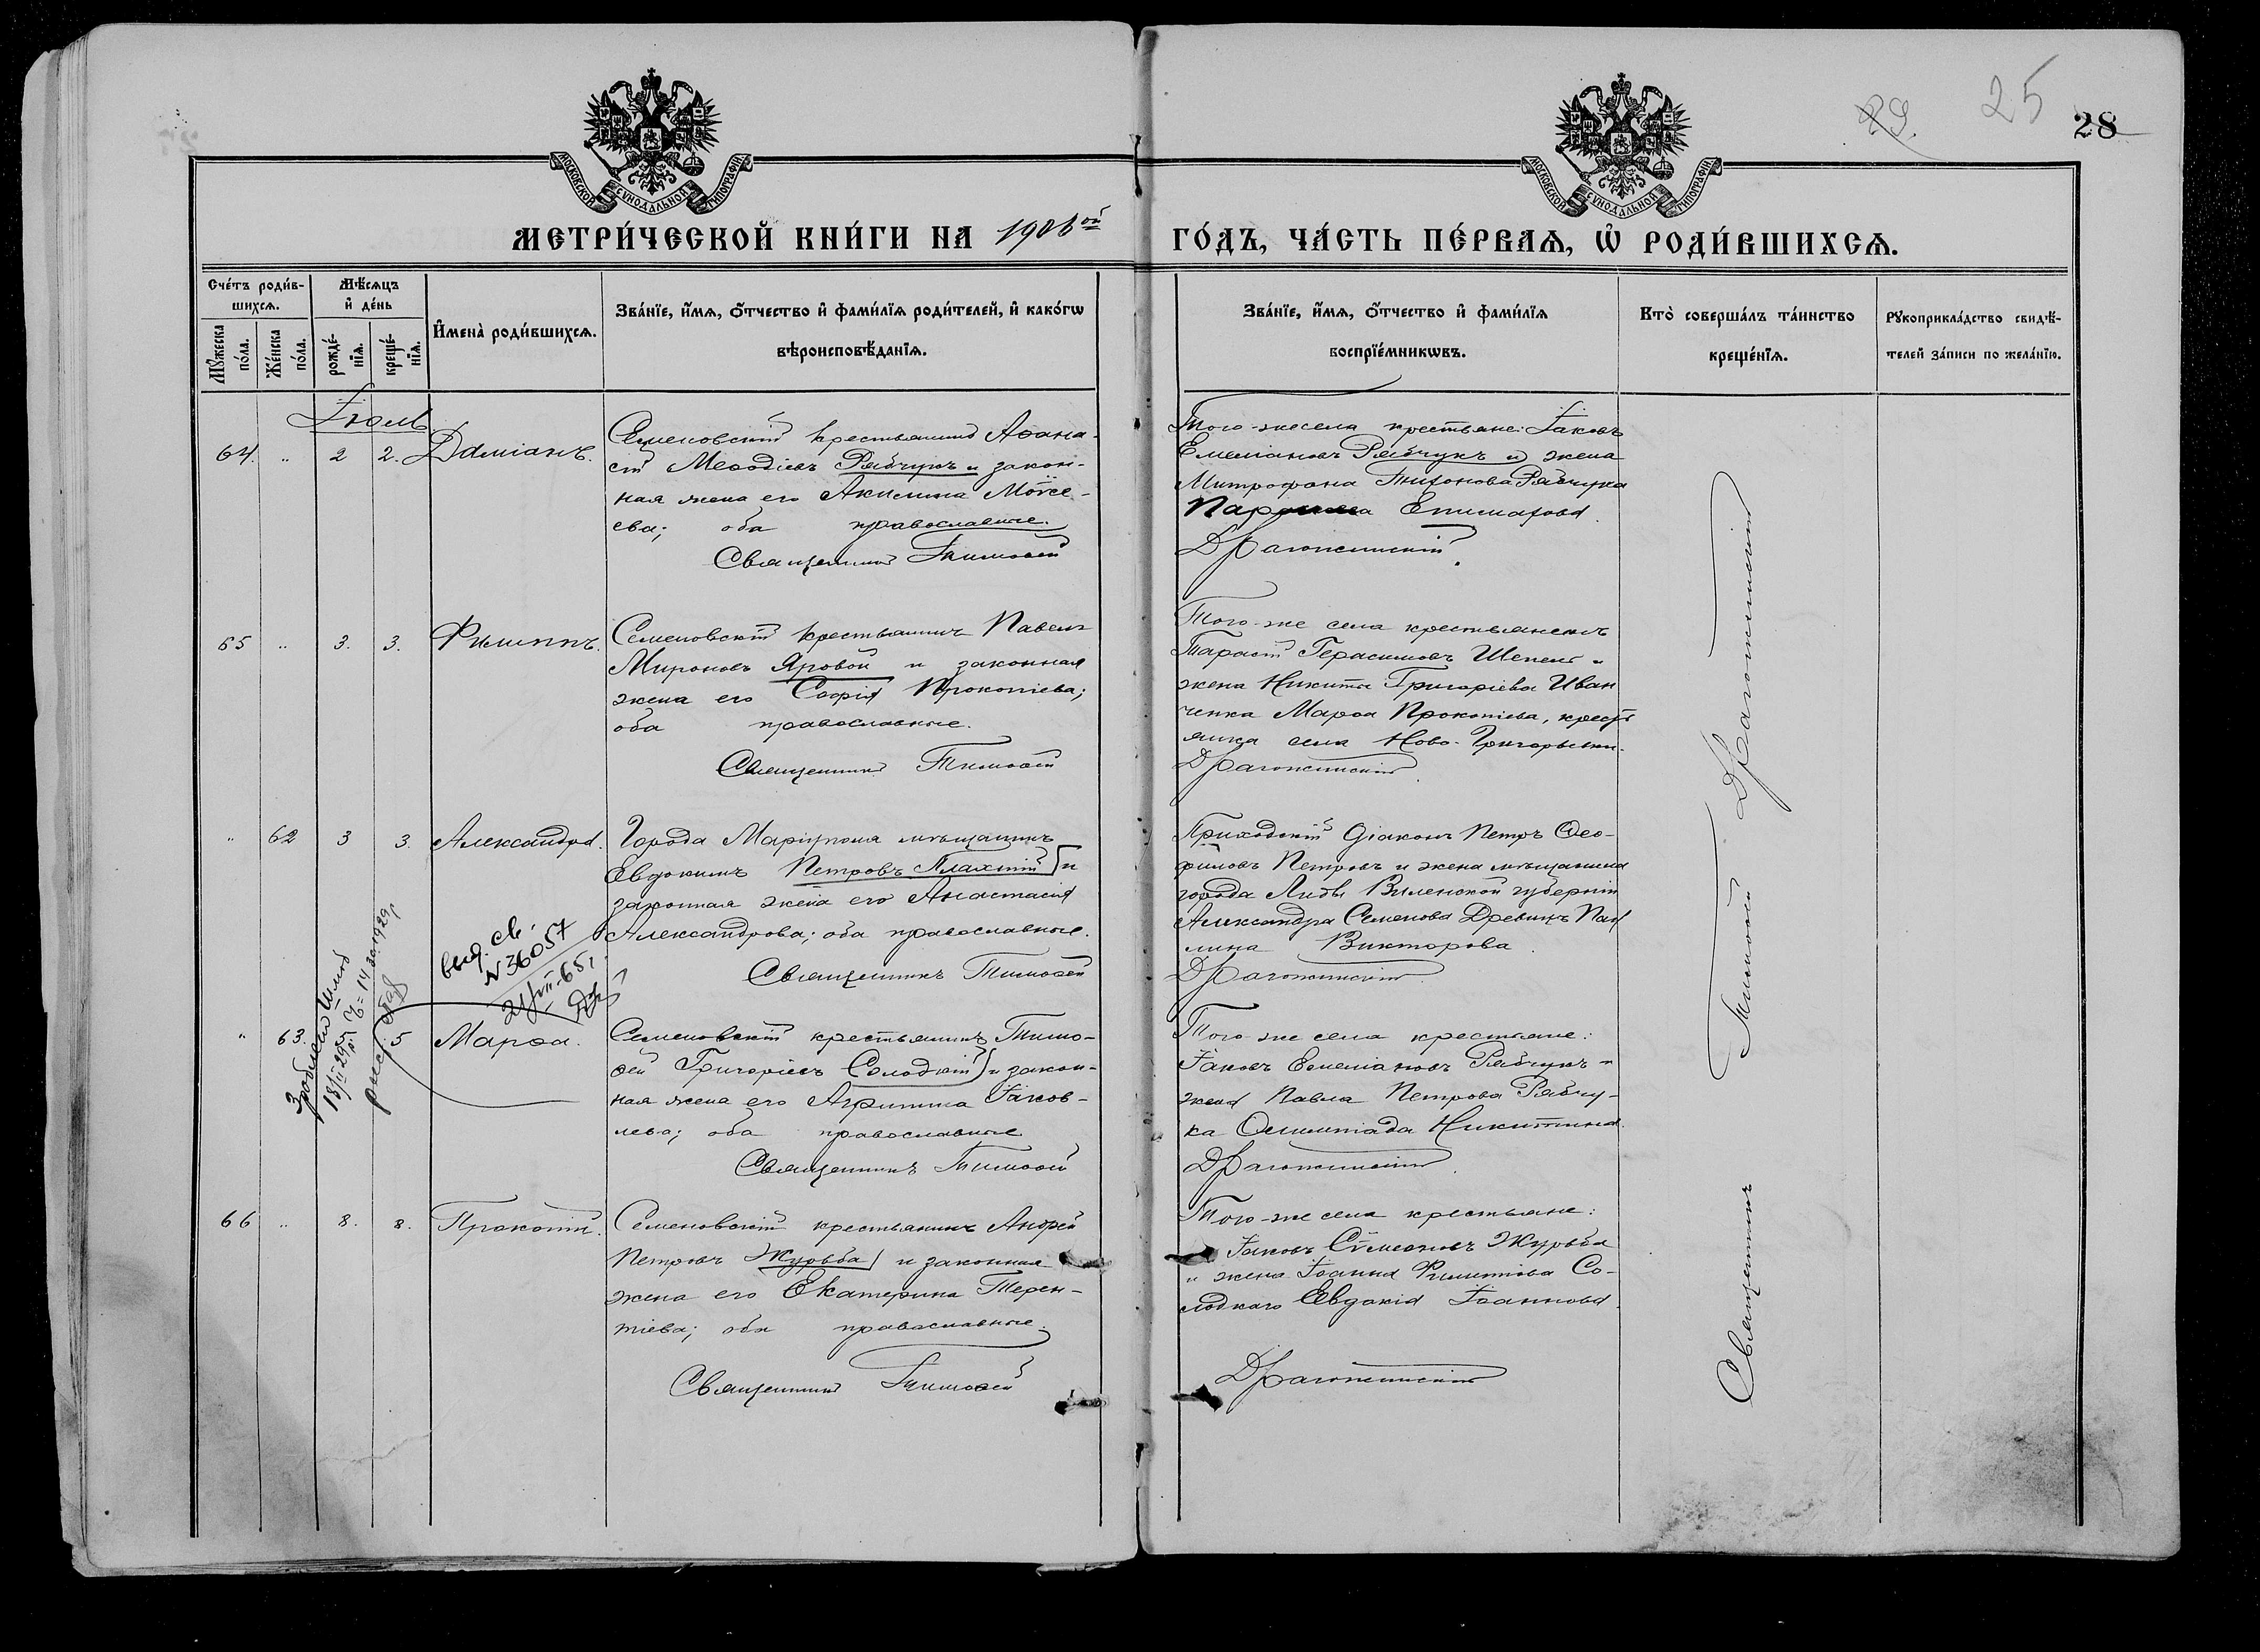 29.
25
28
МОСКОВСКОЙ СѴНОДАЛЬНОЙ ТИПОГРАФІИ
МОСКОВСКОЙ СѴНОДАЛЬНОЙ ТИПОГРАФІИ
МЕТРИ́ЧЕСКОЙ КНИ́ГИ НА 1906ой ГО́ДЪ, ЧА́СТЬ ПЕ́РВАѦ, Ѡ҆ РОДИ́ВШИХСѦ.
Сче́тъ роди́в-
шихсѧ.
Мꙋ́жеска по́ла.
Же́нска по́ла.
Мѣ́сѧцъ
и҆ де́нь
рожде́-
нїѧ.
креще́-
нїѧ.
И҆мена̀ роди́вшихсѧ.
Зва́нїе, и҆́мѧ, ѻ҆́тчество и҆ фами́лїѧ роди́телей, и҆ како́гѡ
вѣроисповѣ́данїѧ.
Зва́нїе, и҆́мѧ, ѻ҆́тчество и҆ фами́лїѧ
воспрїе́мникѡвъ.
Кто̀ соверша́лъ та́инство
креще́нїѧ.
Рꙋкоприкла́дство свидѣ́-
телей за́писи по жела́нїю.
Іюль
64. " 2 2. Даміанъ.
Семеновскій крестьянинъ Аѳана-
сій Меѳодіевъ Рябчукъ и закон-
ная жена его Акилина Моѵсе-
ева; оба православные.
Священникъ Тимоѳей
Того-же села крестьяне: Іаковъ
Емеліановъ Рябчукъ и жена
Митрофана Тихонова Рябчука
Епимахова.
Драгожинскій.
65 " 3. 3. Филиппъ.
Семеновскій крестьянинъ Павелъ
Мироновъ Яровой и законная
жена его Софія Прокопіева;
оба православные.
Священникъ Тимоѳей
Того-же села крестьянинъ
Тарасій Герасимовъ Шепель и
жена Никиты Григоріева Иван
ченка Марѳа Прокопіева, кресть
янка села Ново-Григорьевки.
Драгожинскій.
" 62 3 3. Александра.
Города Маріуполя мѣщанинъ
Евдокимъ Петровъ Плахтій и
законная жена его Анастасія
Александрова; оба православные.
Священникъ Тимоѳей
Приходскій діаконъ Петръ Ѳео-
филовъ Петровъ и жена мѣщанина
города Лиды Виленской губерніи
Александра Семенова Древицъ Пав
лина Викторова.
Драгожинскій.
выд. св.
№ 36057
" 63. 5 Марѳа.
Семеновскій крестьянинъ Тимо-
ѳей Григоріевъ Солодкій и закон-
ная жена его Агрипина Іаков-
лева; оба православные
Священникъ Тимоѳей
Того-же села крестьяне:
Іаковъ Емеліановъ Рябчукъ и
жена Павла Петрова Рябчу-
ка Олимпіада Никитина.
Драгожинскій.
66 " 8. 8. Прокопій.
Семеновскій крестьянинъ Андрей
Петровъ Журьба и законная
жена его Екатерина Терен-
тіева; оба православные.
Священникъ Тимоѳей
Того-же села крестьяне:
Іаковъ Сѵмеоновъ Журьба
и жена Іоанна Филиппова Со-
лодкаго Евдокія Іоаннова.
Драгожинскій
Священникъ Тимоѳей Драгожинскій